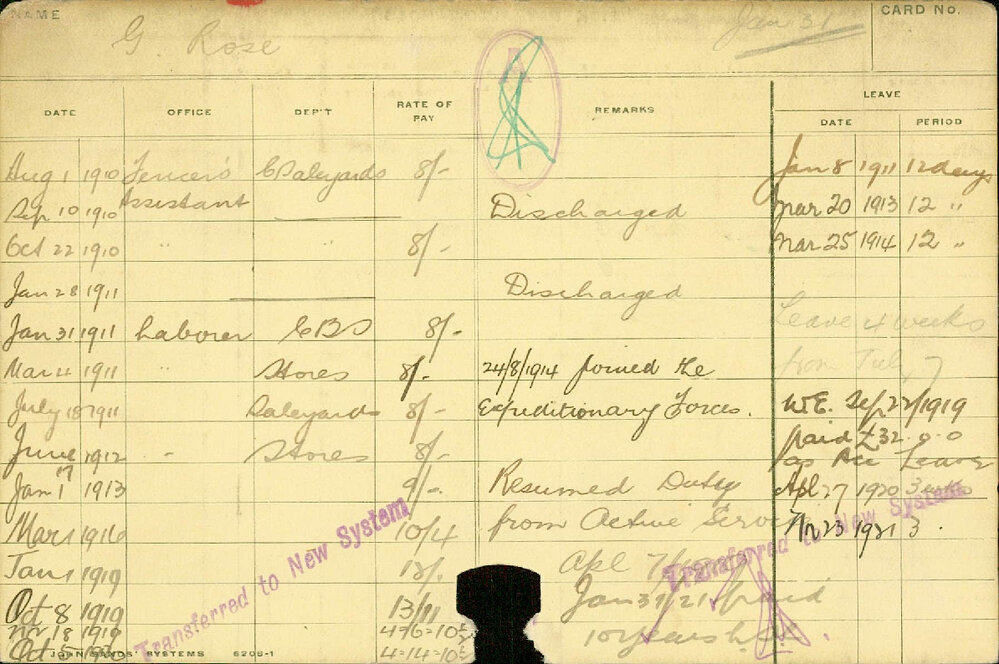 NAME G. Rose Jan 31 CARD No.
DATE OFFICE DEP'T RATE OF PAY REMARKS LEAVE
DATE PERIOD
Aug 1 1910 Fencer's Assistant C Saleyards 8/- Jan 8 1911 12 days
Sep 10 1910 Discharged Mar 20 1913 12 "
Oct 22 1910 " 8/- Mar 25 1914 12 "
Jan 28 1911 Discharged
Jan 31 1911 Laborer CBS 8/- Leave 4 weeks
Mar 4 1911 " Stores 8/- 24/8/1914 Joined the from July 7
July 18 1911 Saleyards 8/- Expeditionary Forces. W.E. Sep 22/1919
June 1912 " Stores 8/- paid £32.0.0
as Acc Leave
Jan 1 1913 9/- Resumed Duty Apl 27 1920 3 weeks
Mar 1916 10/4 from Active Service 23 1921 3
Jan 1 1919 Apl 7
Oct 8 1919 13/11 Jan 31/21 paid
Nr 18 1919 4-7-6=10 10 years
Oct 5 4=14=10
Transferred to New System
Transferred to New System
JOHN SANDS' SYSTEMS 6206-1